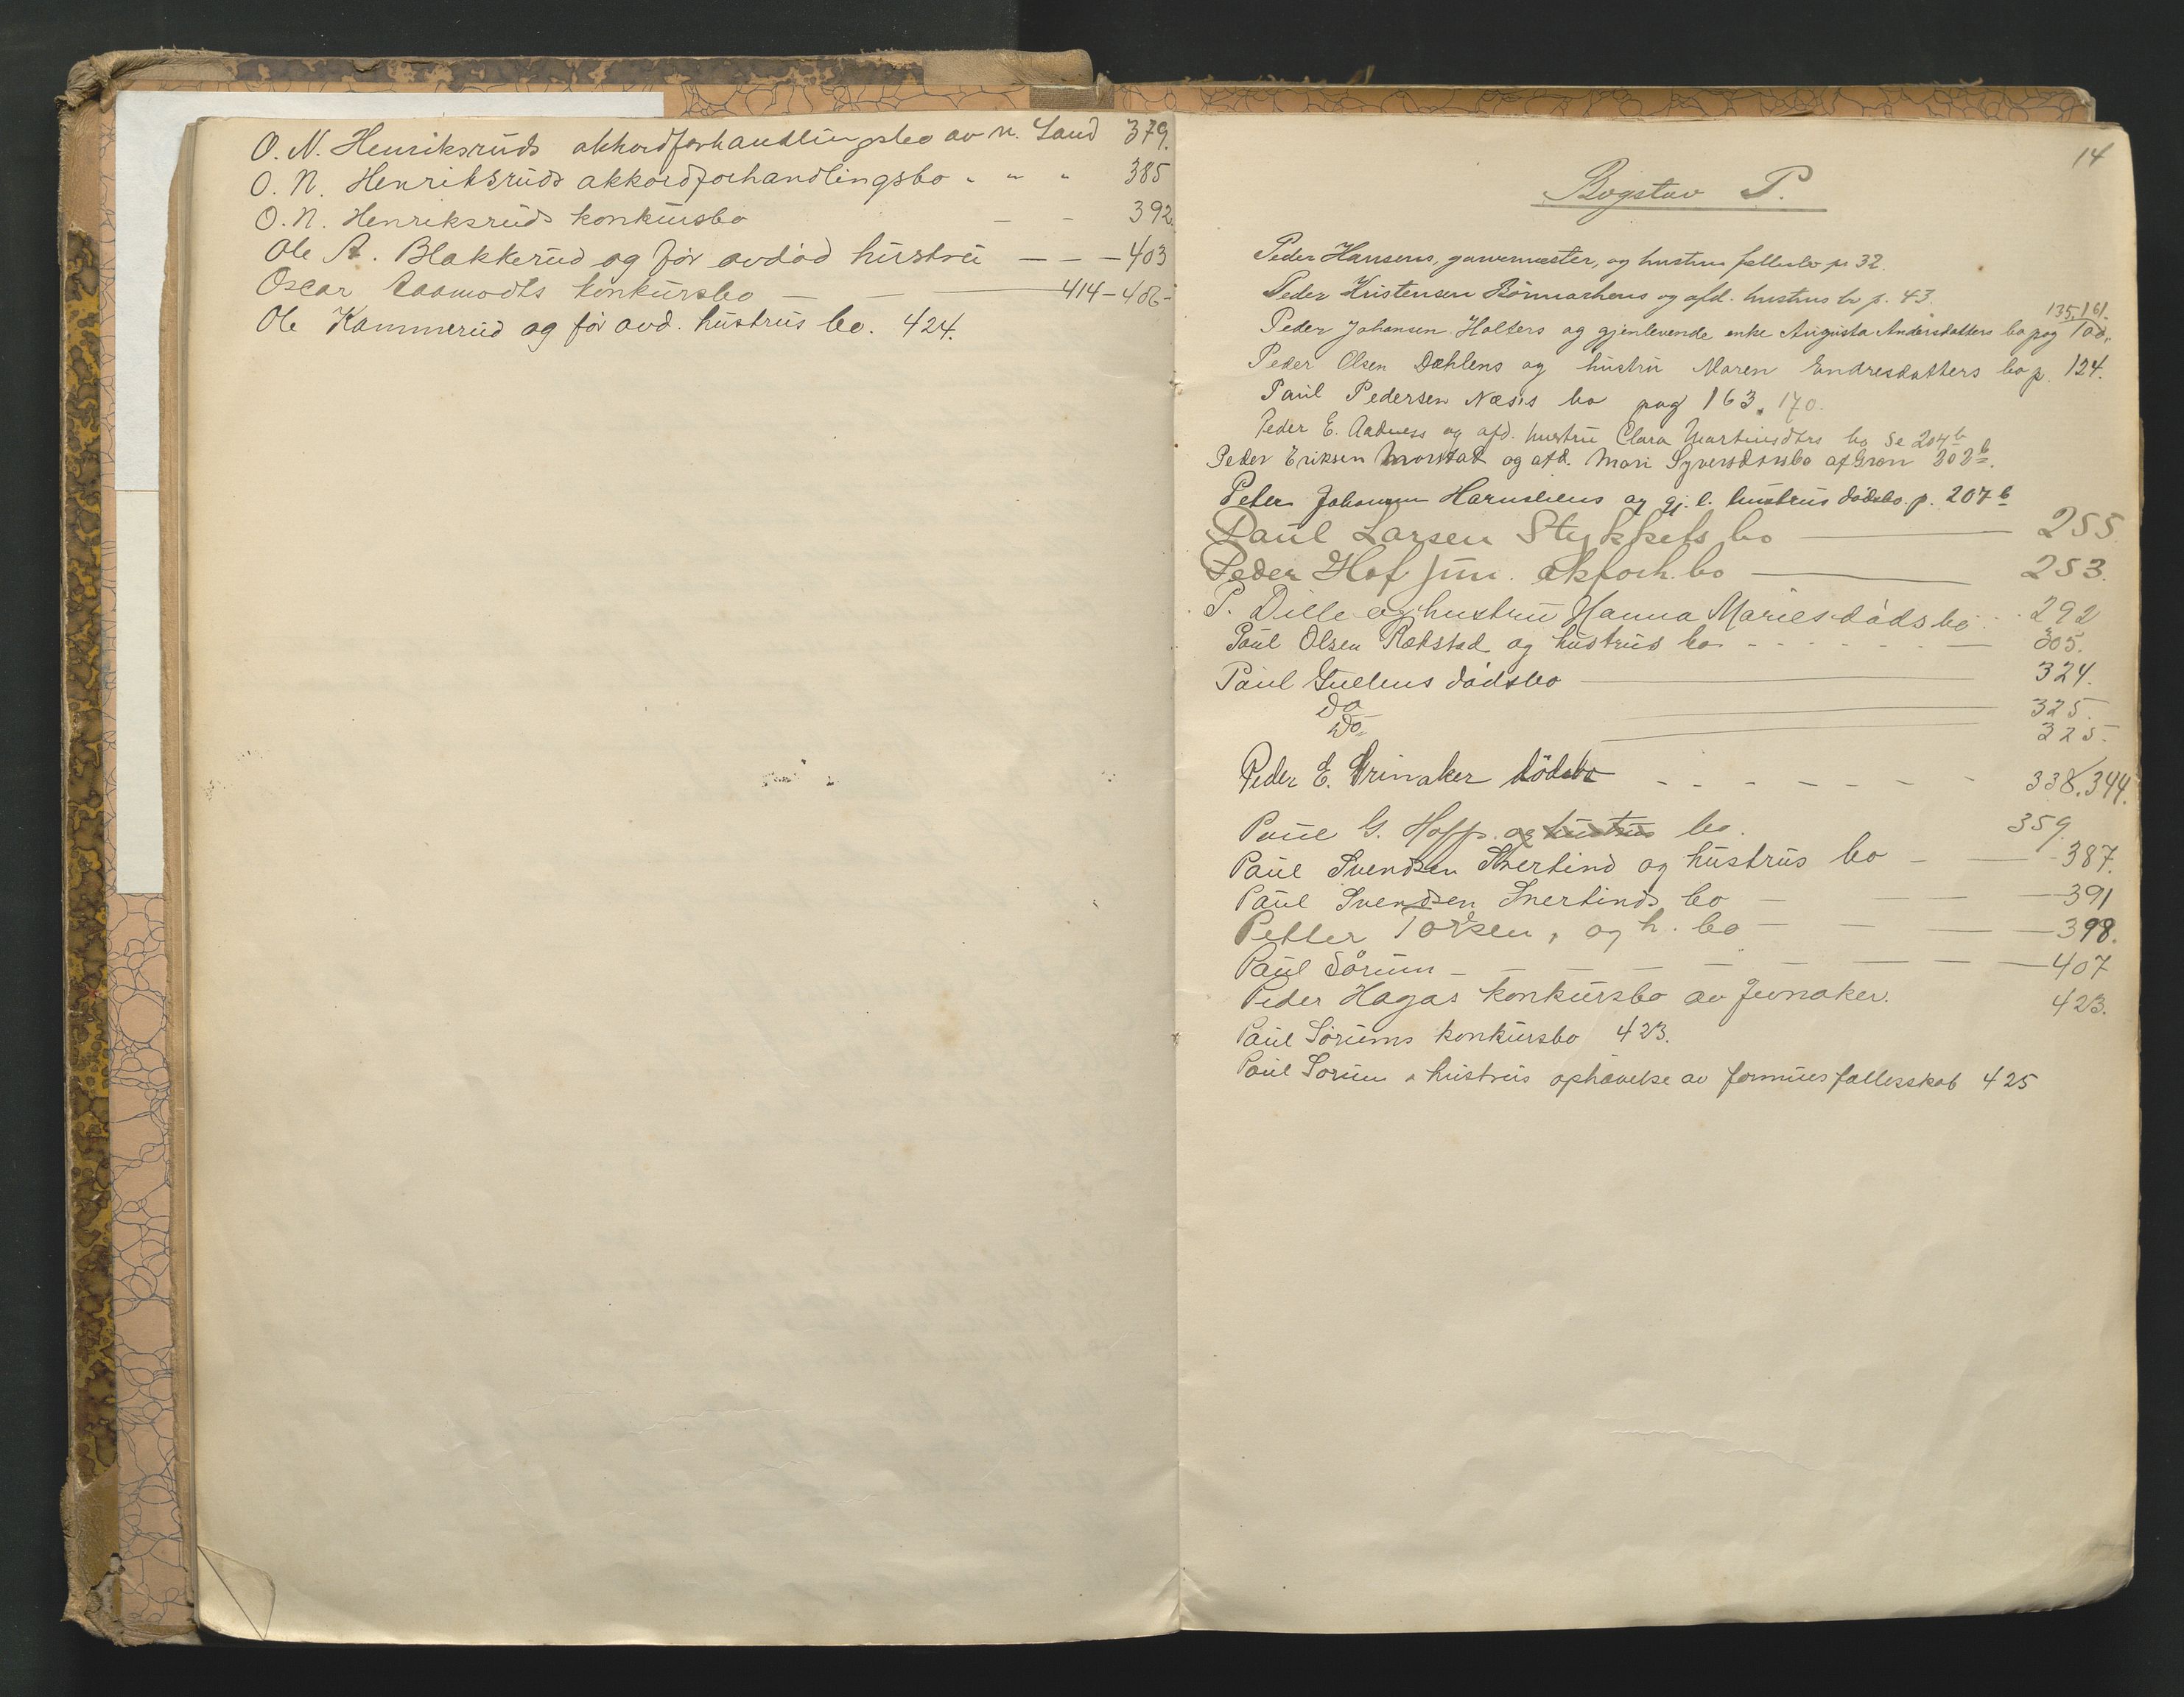 O. N. Henriksruds akkordforhandlingsbo av n. Land 379.
O. N. Henriksruds akkordforhandlingsbo " " " 385
O. N. Henriksruds konkursbo — - 392.
Ole A. Blakkerud og før avdød hustru — — — 403
Oscar Aamodts konkursbo — — — 414-
Ole Kammerud og før avd. hustrus bo. 424.
14
Bogstav P.
Peder Hansens, garvermester, og hustrus fellesbo p. 32.
Peder Kristensen og afd. hustrus bo p. 43.
135, 161.
Peder Johansen Holters og gjenlevende enke Augusta Andersdatters bo pag
Peder Olsen Dæhlens og hustru Maren Endresdatters bo p. 124.
Paul Pedersen Næss's bo pag 163. 170.
Peder E. Aadness og afd. hustru Clara Martinsdtrs bo se 204 b
Peder Eriksen Morstad og afd. Mari Syversdtrs bo af Gran 202 b.
Peter Johansen og gj. l. hustrus dødsbo p. 207 b
Paul Larsen Stykkets bo — 255.
Peder Hof jun. akforh. bo — 253.
P. Dille og hustru Hanna Maries dødsbo 292
Paul Olsen Rækstad og hustrus bo - - - - - - — 305.
Paul Gullens dødsbo — 324.
Do — 325.
Do — 325.
Peder E. Grinaker dødsbo - - - - - - - 338. 344.
Paul G. Hoffs og hustrus bo. 359
Paul Svendsen Snertind og hustrus bo - — 387.
Paul Svendsen Snertinds bo — — — 391
Petter og h. bo — — — — 398.
Paul Sørum - — — — — — — — 407
Peder Hagas konkursbo av Jevnaker. 423.
Paul Sørums konkursbo 423.
Paul Sørum & hustrus ophævelse av formuesfællesskab 425